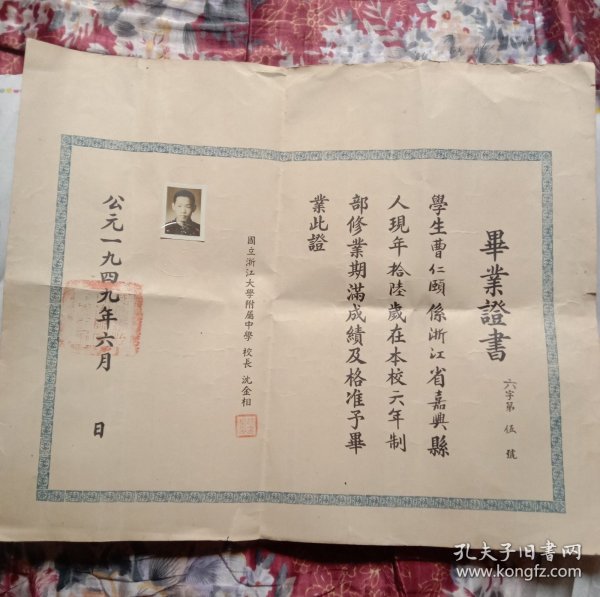 畢業證書
六字第 伍 號
學生曹仁頤係浙江省嘉興縣
人現年拾陸歲在本校六年制
部修業期滿成績及格准予畢
業此證
國立浙江大學附屬中學 校長 沈金相
公元一九四九年六月 日
孔夫子旧書网
www.kongfz.com